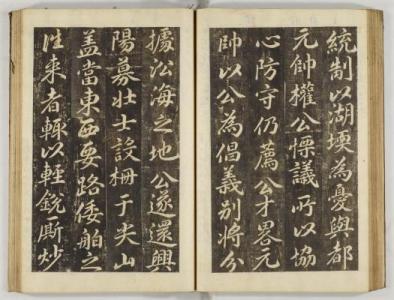 統制以湖堧為憂與都
元帥權公慄議所以協
心防守仍薦公才畧元
帥以公為倡義别將分
據沿海之地公遂還興
陽募壯士設柵于尖山
盖當東西要路倭舶之
往来者輙以輕銳厮炒